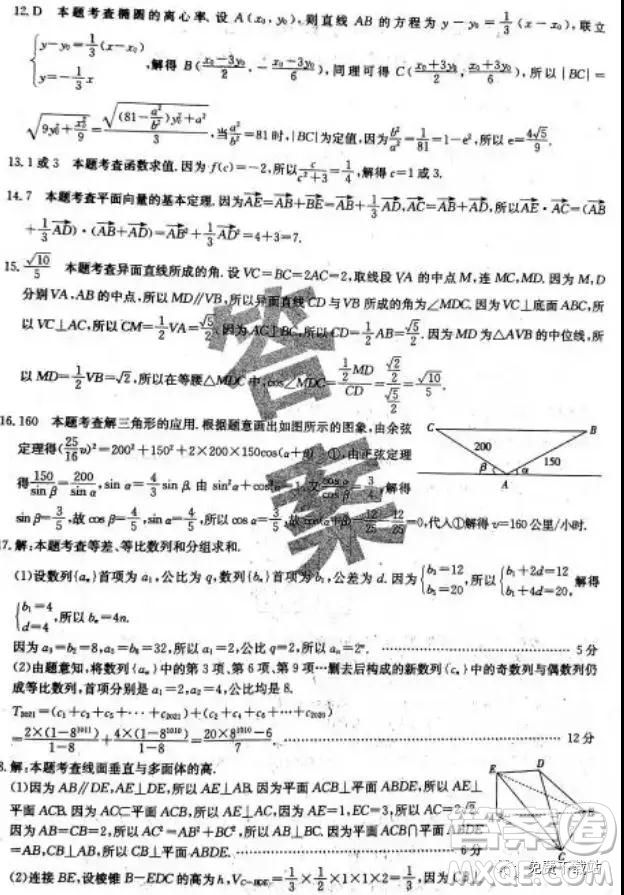 12. D 本题考查椭圆的离心率. 设 A(x₀, y₀), 则直线 AB 的方程为 y-y₀=1/3(x-x₀), 联立
{y-y₀=1/3(x-x₀)
y=-1/3x ,解得 B((x₀-3y₀)/2, -(x₀-3y₀)/6), 同理可得 C((x₀+3y₀)/2, (x₀+3y₀)/6), 所以|BC|=
√(9y₀²+x₀²/9)=√((81-a²/b²)y₀²+a²)/3, 当a²/b²=81时, |BC|为定值, 因为b²/a²=1/81=1-e², 所以 e=4√5/9.
13. 1或3 本题考查函数求值. 因为 f(c)=-2, 所以c/(c²+3)=1/4, 解得 c=1 或 3.
14. 7 本题考查平面向量的基本定理. 因为AE=AB+BE=AB+1/3AD, AC=AB+AD, 所以AE·AC=(AB
+1/3AD)·(AB+AD)=AB²+1/3AD²=4+3=7.
15. √10/5 本题考查异面直线所成的角. 设 VC=BC=2AC=2, 取线段 VA 的中点 M, 连 MC, MD. 因为 M, D
分别 VA, AB 的中点, 所以 MD∥VB, 所以异面直线 CD 与 VB 所成的角为∠MDC. 因为 VC⊥底面 ABC, 所
以 VC⊥AC, 所以 CM=1/2VA=√5/2. 因为 AC⊥BC, 所以 CD=1/2AB=√5/2. 因为 MD 为△AVB 的中位线, 所
以 MD=1/2VB=√2, 所以在等腰△MDC 中, cos∠MDC=(1/2MD)/CD=(√2/2)/(√5/2)=√10/5.
16. 160 本题考查解三角形的应用. 根据题意画出如图所示的图象, 由余弦
定理得(25/16 v)²=200²+150²+2×200×150cos(α+β) ①, 由正弦定理
得150/sin β=200/sin α, sin α=4/3 sin β. 由 sin²α+cos²α=1, 又cos α/cos β=3/4, 解得
sin β=3/5, 故 cos β=4/5, sin α=4/5, 所以 cos α=3/5, 故 cos(α+β)=12/25-12/25=0, 代入①解得 v=160 公里/小时.
C B 200 150 β α A
7. 解: 本题考查等差、等比数列和分组求和.
(1)设数列{aₙ}首项为 a₁, 公比为 q, 数列{bₙ}首项为 b₁, 公差为 d. 因为{b₃=12 b₅=20, 所以{b₁+2d=12 b₁+4d=20, 解得
{b₁=4 d=4, 所以 bₙ=4n.
因为 a₃=b₂=8, a₅=b₈=32, 所以 a₁=2, 公比 q=2, 所以 aₙ=2ⁿ. ……………… 5 分
(2)由题意知, 将数列{aₙ}中的第 3 项、第 6 项、第 9 项…删去后构成的新数列{cₙ}中的奇数列与偶数列仍
成等比数列, 首项分别是 a₁=2, a₂=4, 公比均是 8.
T₂₀₂₁=(c₁+c₃+c₅+⋯+c₂₀₂₁)+(c₂+c₄+c₆+⋯+c₂₀₂₀)
=2×(1-8¹⁰¹¹)/(1-8)+4×(1-8¹⁰¹⁰)/(1-8)=(20×8¹⁰¹⁰-6)/7. ……………… 12 分
8. 解: 本题考查线面垂直与多面体的高.
(1)因为 AB∥DE, AE⊥DE, 所以 AE⊥AB. 因为平面 ACB⊥平面 ABDE, 所以 AE⊥
平面 ACB. 因为 AC⊂平面 ACB, 所以 AE⊥AC, 因为 AE=1, EC=3, 所以 AC=2√2.
因为 AB=CB=2, 所以 AC²=AB²+BC², 所以 AB⊥BC. 因为平面 ACB∩平面 ABDE
=AB, CB⊥AB, 所以 CB⊥平面 ABDE. ……………… 6 分
E D B C
(2)连接 BE, 设棱锥 B—EDC 的高为 h, V
=1/3×1/2×1×1×2=1/3, 因为
答案